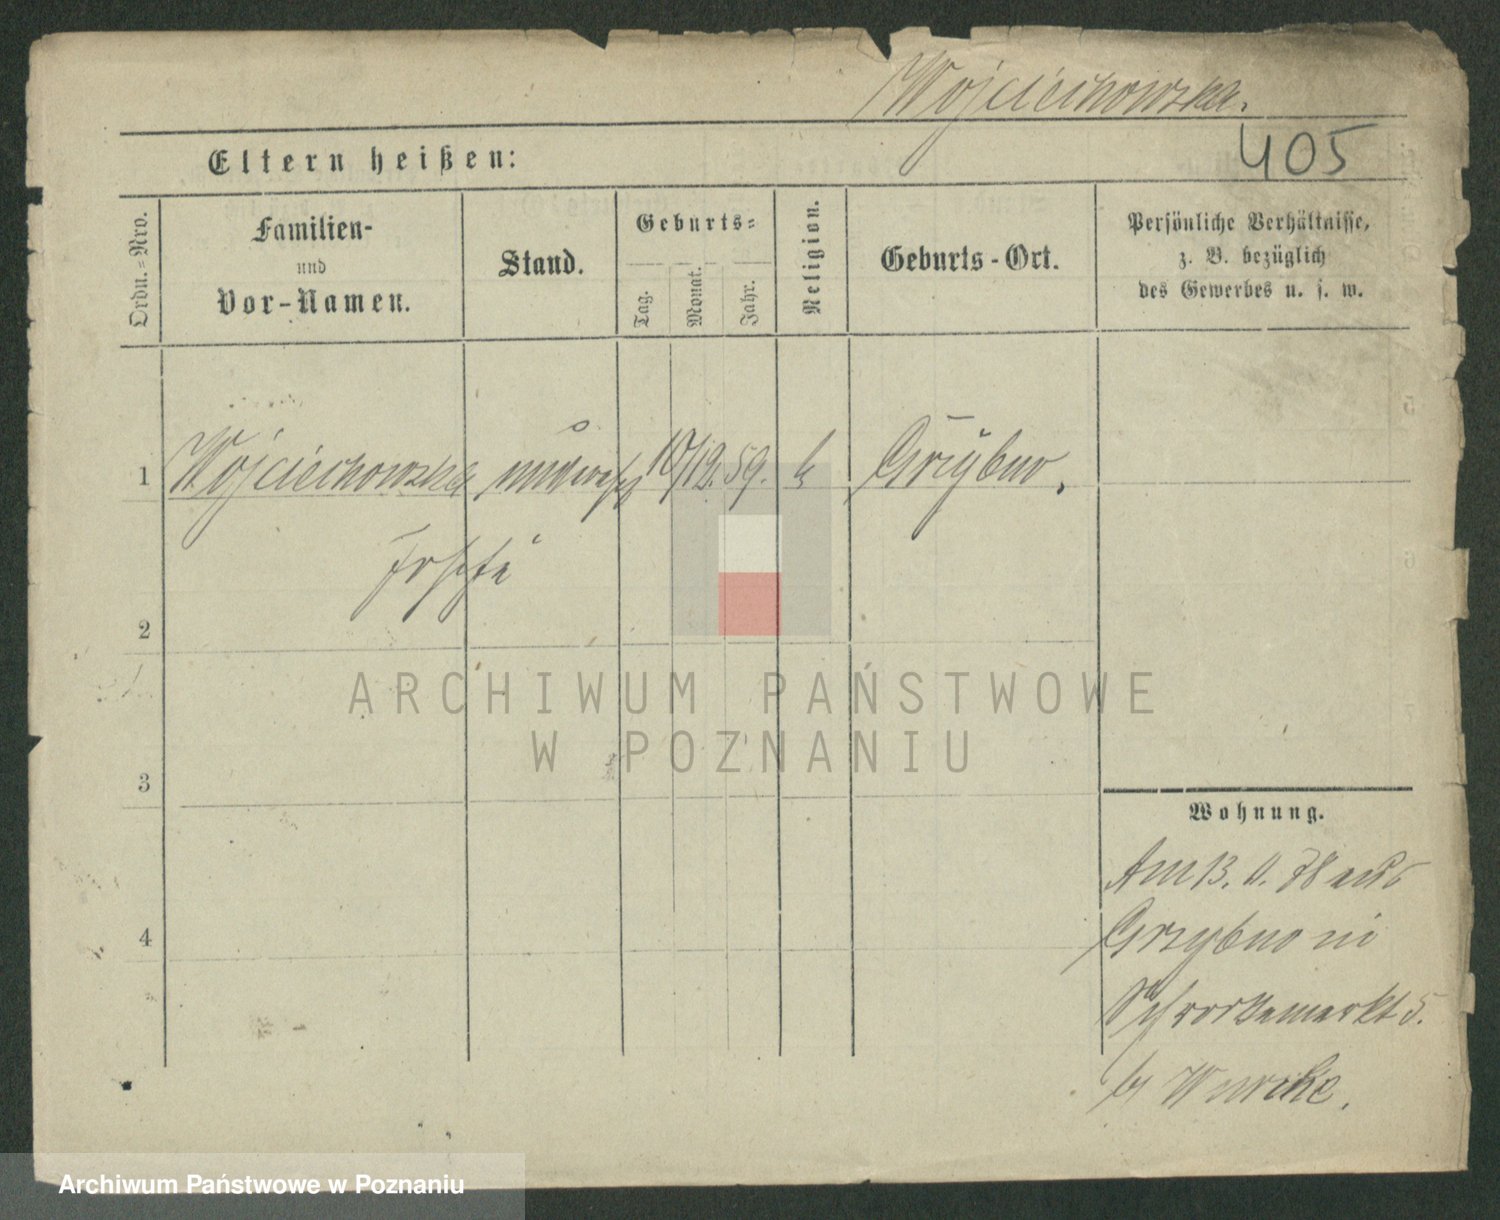 Wojciechowska.
405
Eltern heißen:
Ordn.=Nro.
Familien-
und
Vor-Namen.
Stand.
Geburts=
Tag.
Monat.
Jahr.
Religion.
Geburts-Ort.
Persönliche Verhältnisse,
z. B. bezüglich
des Gewerbes u. s. w.
1 Wojciechowska 10/12. 59. k Grzybno,
Josefa
2
3
4
Wohnung.
Am 13. 78 aus
Grzybno in
5.
b/
ARCHIWUM PAŃSTWOWE
W POZNANIU
Archiwum Państwowe w Poznaniu